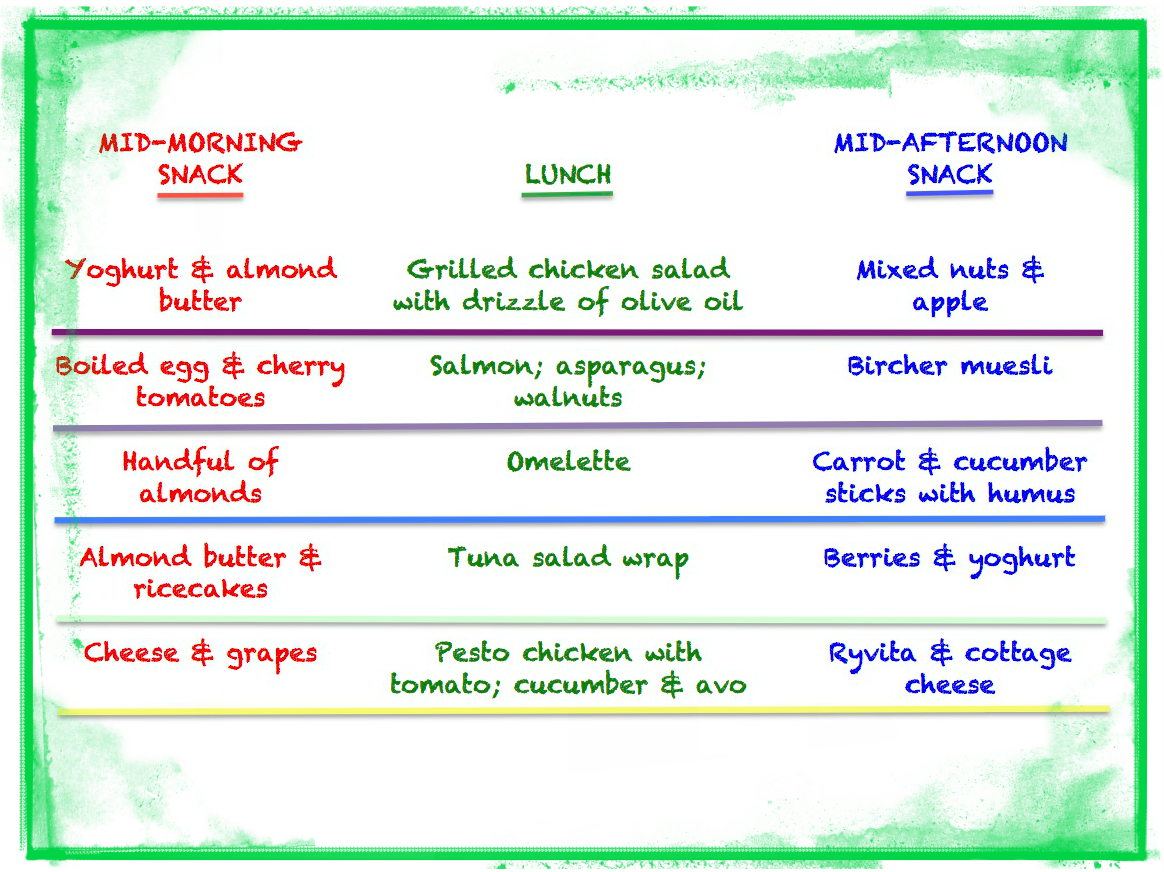 MID-MORNING
SNACK
LUNCH
MID-AFTERNOON
SNACK
Yoghurt & almond
butter
Grilled chicken salad
with drizzle of olive oil
Mixed nuts &
apple
Boiled egg & cherry
tomatoes
Salmon; asparagus;
walnuts
Bircher muesli
Handful of
almonds
Omelette
Carrot & cucumber
sticks with humus
Almond butter &
ricecakes
Tuna salad wrap
Berries & yoghurt
Cheese & grapes
Pesto chicken with
tomato; cucumber & avo
Ryvita & cottage
cheese